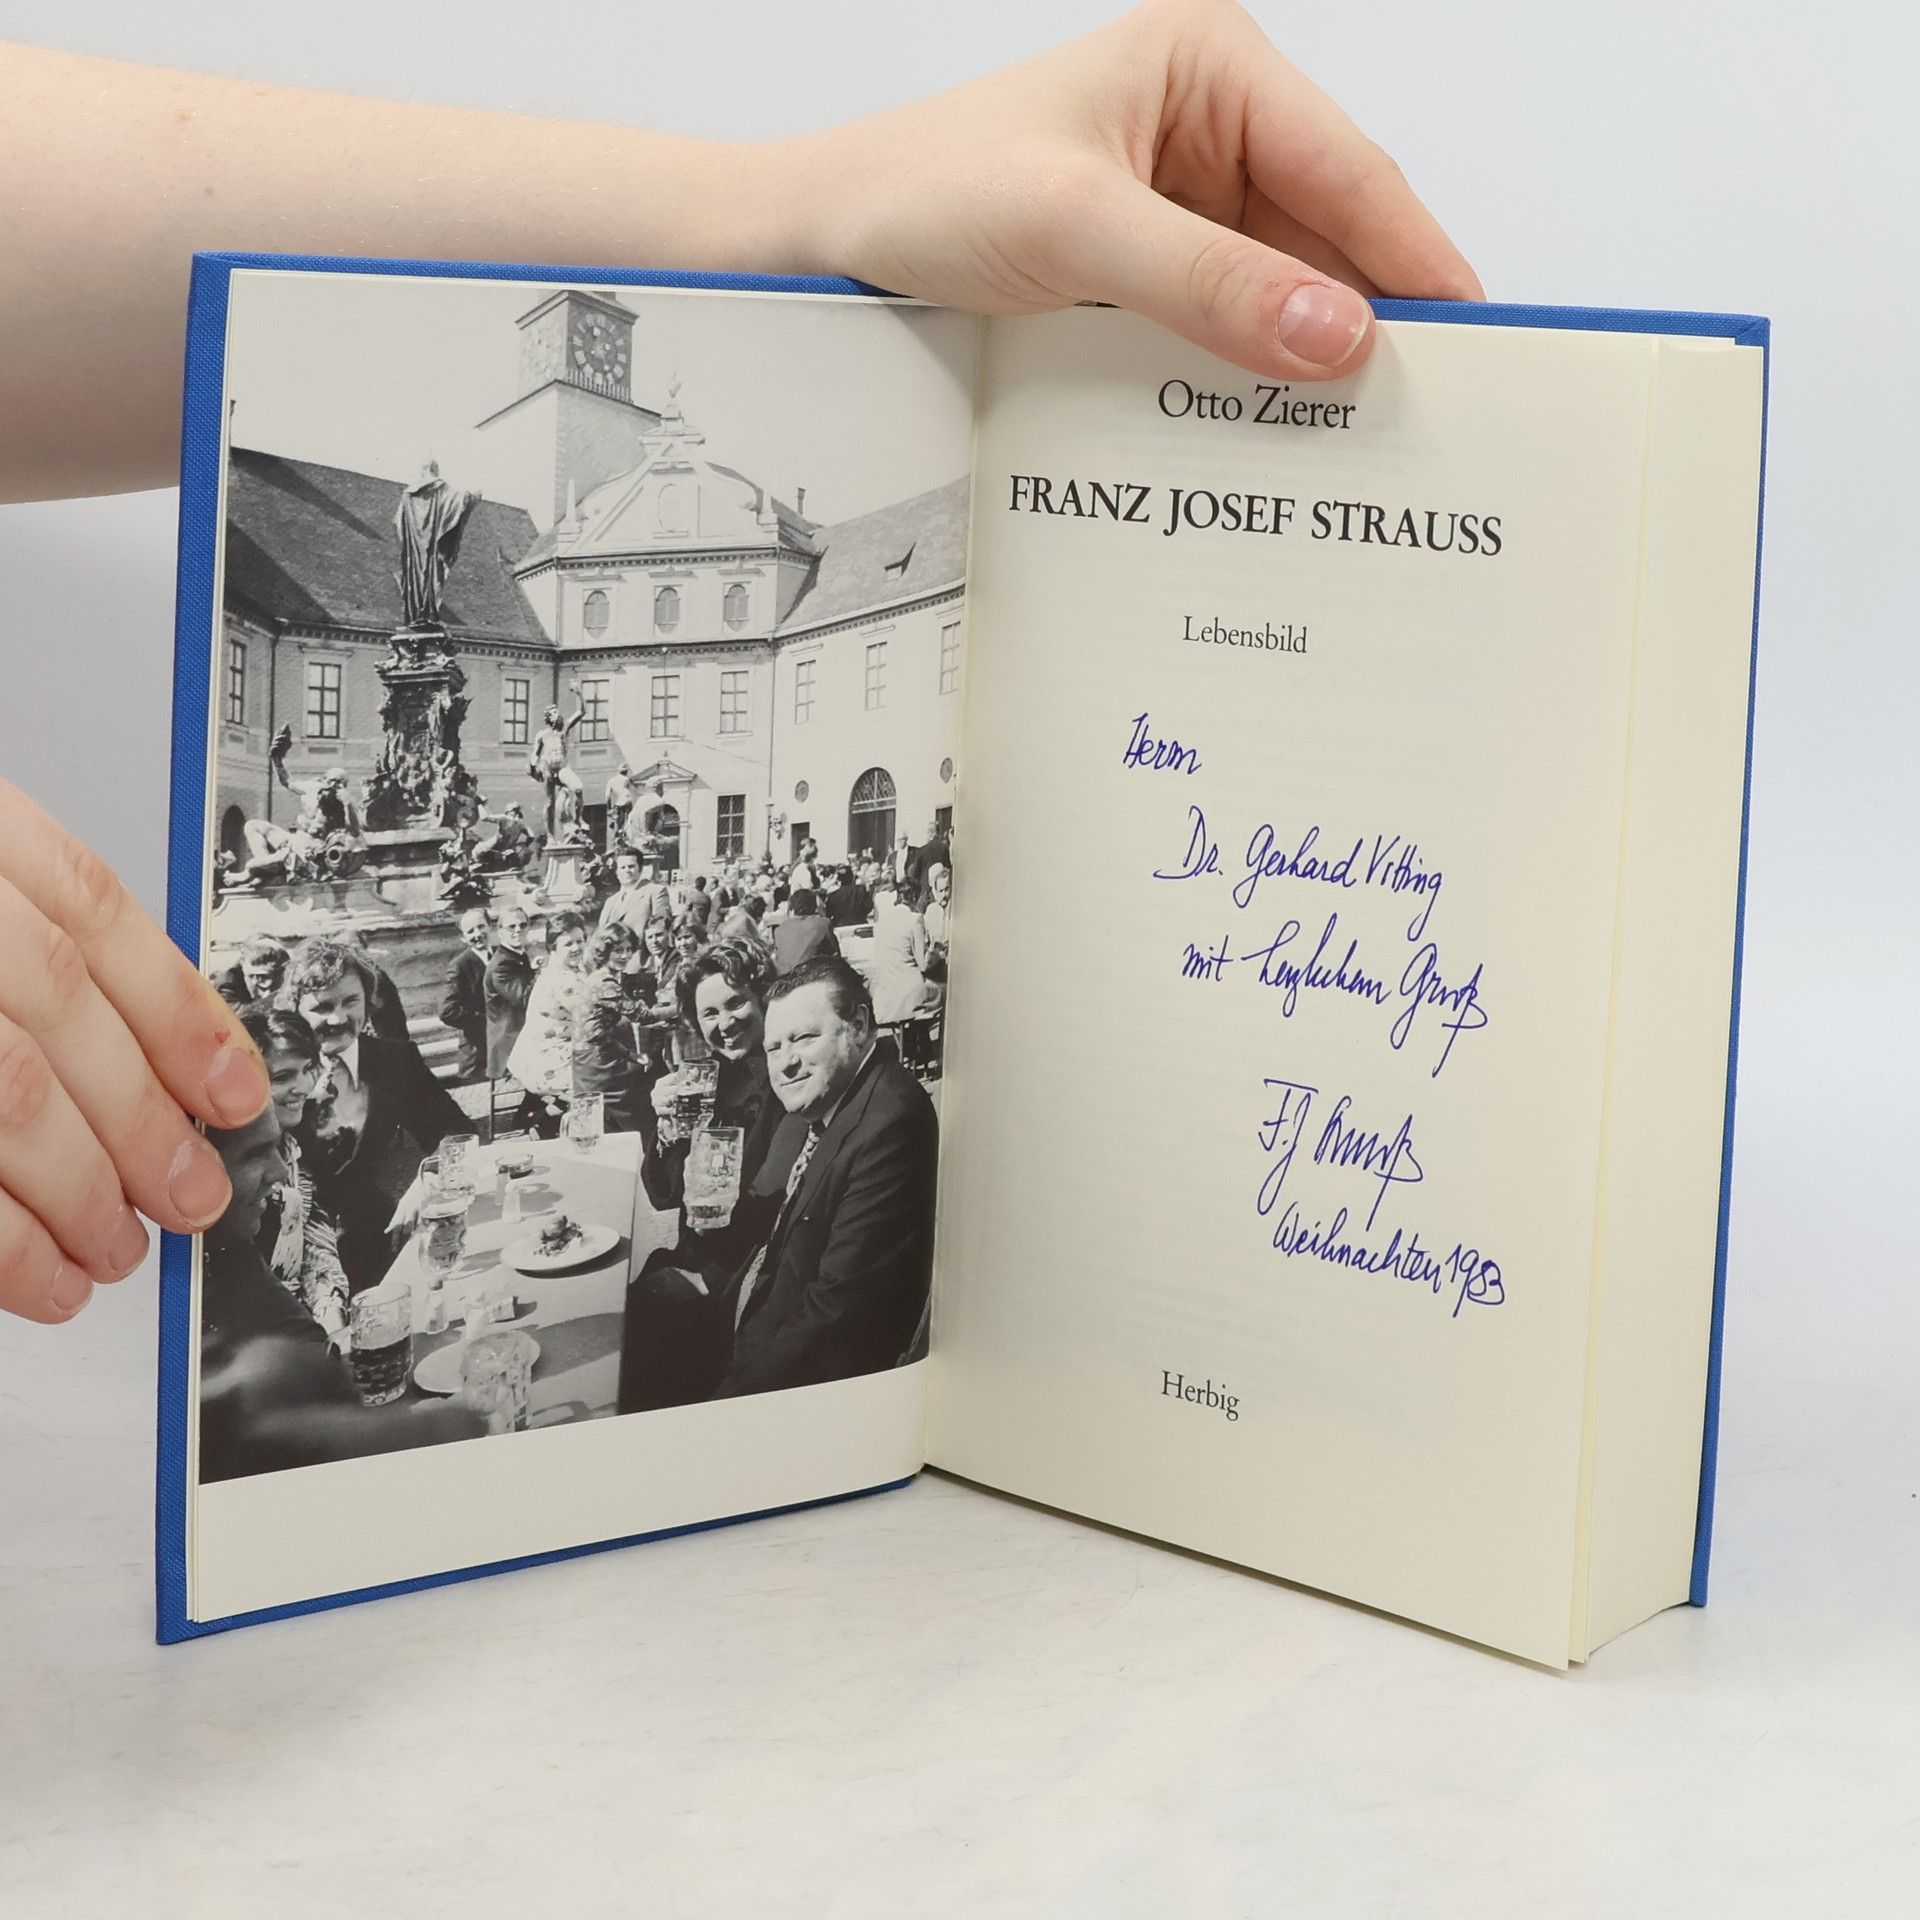 Otto Zierer
FRANZ JOSEF STRAUSS
Lebensbild
Herrn
Dr. Gerhard Vitting
mit herzlichem Gruß
F. J. Strauß
Weihnachten 1983
Herbig